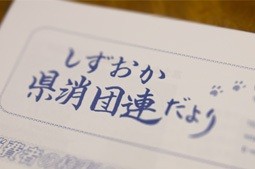 しずおか
県消団連だより